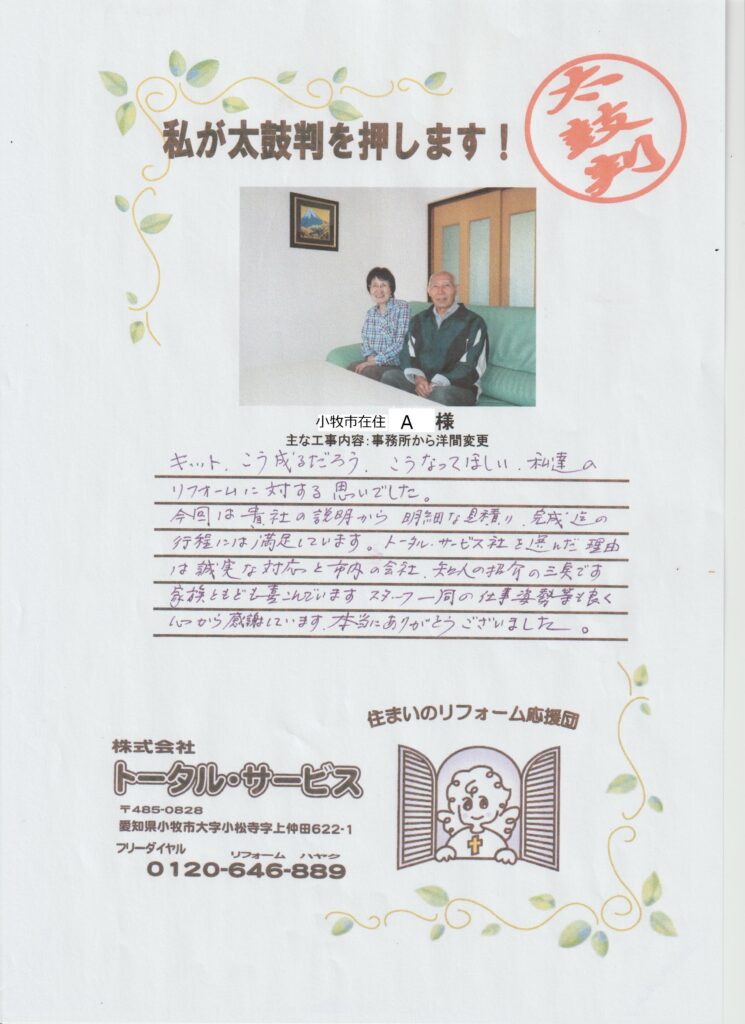 太鼓判
私が太鼓判を押します！
小牧市在住 A 様
主な工事内容：事務所から洋間変更
キット、こう成るだろう、こうなってほしい、私達の
リフォームに対する思いでした。
今回は貴社の説明から 明細な見積り、完成迄の
行程には満足しています。トータル・サービス社を選んだ理由
は誠実な対応と市内の会社、知人の紹介の三点です
家族ともども喜こんでいます スタッフ一同の仕事姿勢等も良く
心から感謝しています、本当にありがとうございました。
住まいのリフォーム応援団
株式会社
トータル・サービス
〒485-0828
愛知県小牧市大字小松寺字上仲田622-1
フリーダイヤル リフォーム ハヤク
0120-646-889